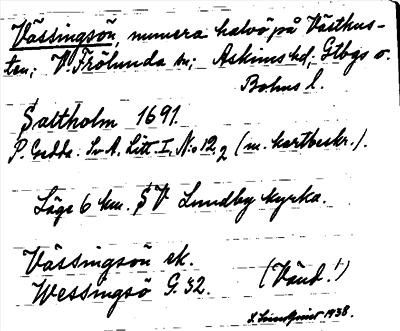 Vässingsön, numera halvö på Västkus-
ten; V. Frölunda sn; Askims hd; Gtbgs o.
Bohus l.
Saltholm 1691.
P. Gedda. Sv A. Litt I, No 12, 2 (m. kartbeskr.).
Läge 6 km. SV Lundby kyrka.
Vässingsön ek.
Wessingsö G. 32. (Vänd!)
S. Lindqvist 1938.